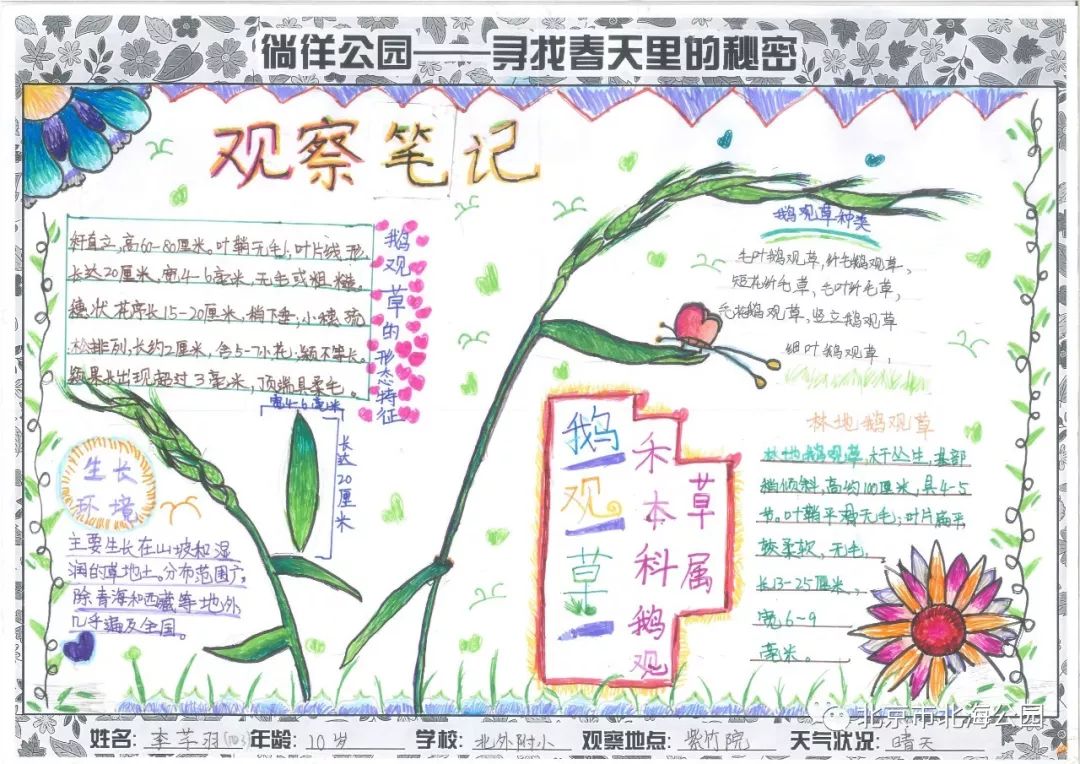 徜徉公园——寻找春天里的秘密
观察笔记
秆直立,高60-80厘米。叶鞘无毛,叶片线形,
长达20厘米,宽4-6毫米,无毛或粗糙。
穗状花序长15-20厘米,稍下垂;小穗疏
松排列,长约2厘米,含5-7小花;颖不等长。
颖果长出现超过3毫米,顶端具柔毛。
鹅观草的形态特征
宽4-6毫米
长达20厘米
生长
环境
主要生长在山坡和湿
润的草地上。分布范围广,
除青海和西藏等地外,
几乎遍及全国。
鹅观草种类
毛叶鹅观草,纤毛鹅观草,
短花纤毛草,毛叶纤毛草,
毛花鹅观草,竖立鹅观草
细叶鹅观草,
鹅观草
禾本科鹅观
草属
林地鹅观草
林地鹅观草,秆丛生,基部
稍倾斜,高约100厘米,具4-5
节。叶鞘平滑无毛;叶片扁平
较柔软,无毛,
长13-25厘米,
宽6-9
毫米。
北京市北海公园
姓名: 李芊羽 年龄: 10岁 学校: 北外附小 观察地点: 紫竹院 天气状况: 晴天